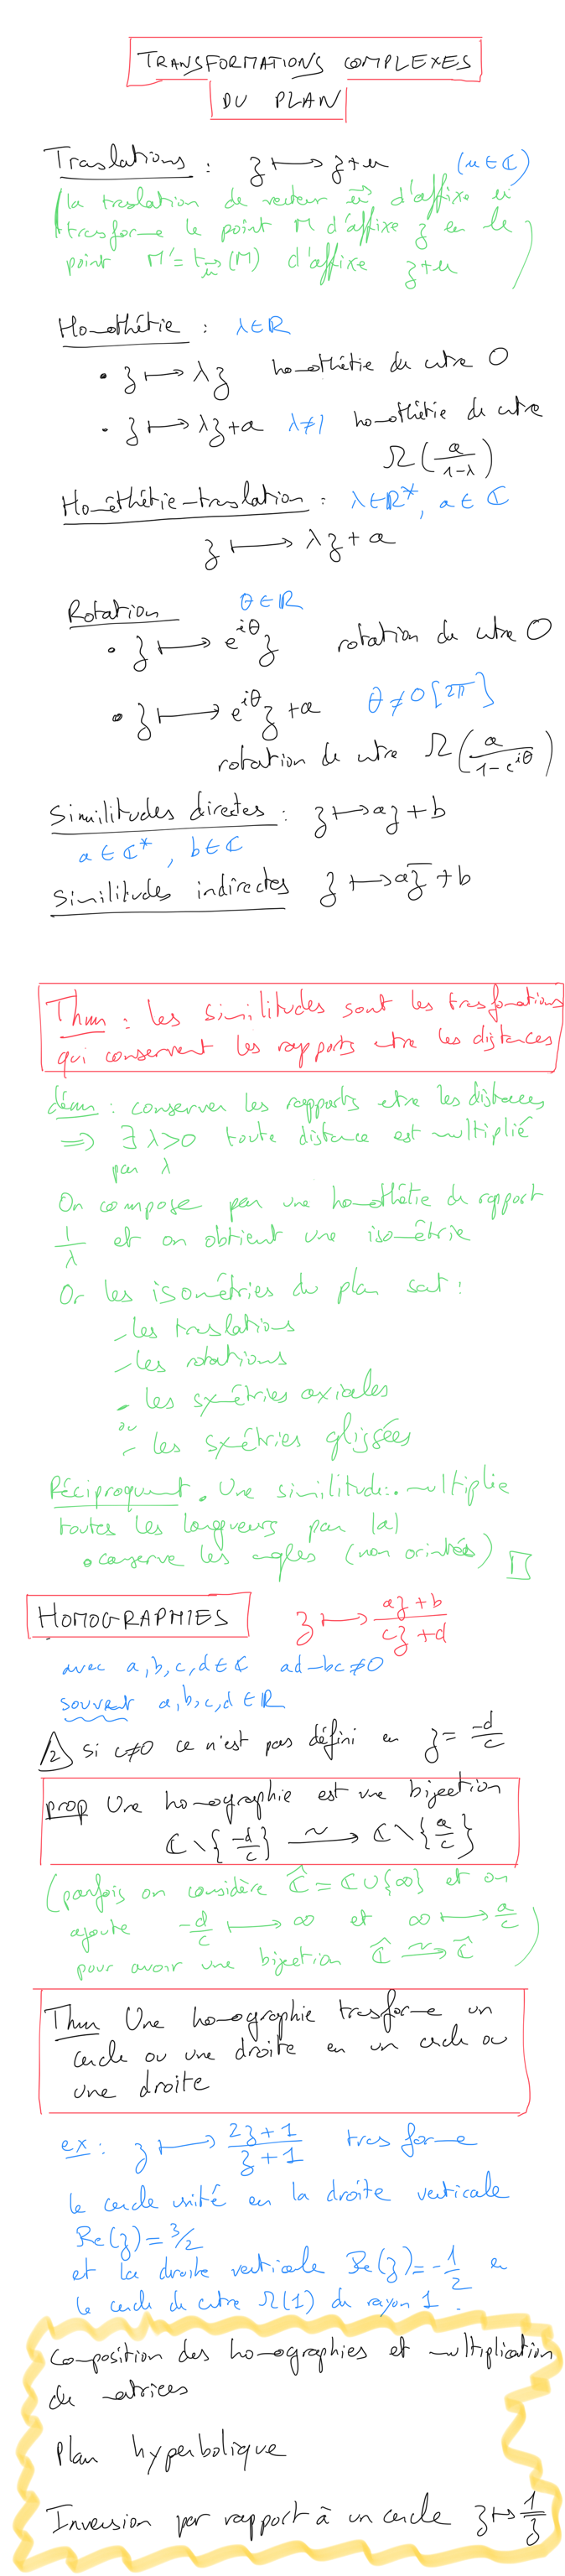 TRANSFORMATIONS COMPLEXES
DU PLAN
Traslations : z ⟼ z+u (u ∈ ℂ)
(la traslation de vecteur u⃗ d'affixe u
trasforme le point M d'affixe z en le
point M' = t_u⃗(M) d'affixe z+u)
Homothétie : λ ∈ ℝ
• z ⟼ λz homothétie de cntre O
• z ⟼ λz+a λ≠1 homothétie de cntre
Ω(a/(1-λ))
Homothétie-traslation : λ ∈ ℝ*, a ∈ ℂ
z ⟼ λz + a
Rotation θ ∈ ℝ
• z ⟼ e^{iθ}z rotation de cntre O
• z ⟼ e^{iθ}z + a θ ≠ 0 [2π]
rotation de cntre Ω(a/(1-e^{iθ}))
Similitudes directes : z ⟼ az + b
a ∈ ℂ*, b ∈ ℂ
Similitudes indirectes z ⟼ az̄ + b
Thm : les similitudes sont les trasformations
qui conservent les rapports entre les distances
dém : conserver les rapports etre les distaces
⟹ ∃ λ>0 toute distance est multiplié
par λ
On compose par une homothétie de rapport
1/λ et on obtient une isométrie
Or les isométries du plan sont :
- les traslations
- les rotations
- les symétries axiales
ou
- les symétries glissées
Réciproquement. Une similitude : • multiplie
toutes les longueurs par |a|
• conserve les angles (non orientés) □
HOMOGRAPHIES z ⟼ (az+b)/(cz+d)
avec a,b,c,d ∈ ℂ ad-bc≠0
souvent a,b,c,d ∈ ℝ
⚠ si c≠0 ce n'est pas défini en z = -d/c
prop Une homographie est une bijection
ℂ∖{-d/c} ⟶~ ℂ∖{a/c}
(parfois on considère ℂ̂ = ℂ∪{∞} et on
ajoute -d/c ⟼ ∞ et ∞ ⟼ a/c
pour avoir une bijection ℂ̂ ⟶~ ℂ̂)
Thm Une homographie trasforme un
cercle ou une droite en un cercle ou
une droite
ex : z ⟼ (2z+1)/(z+1) trasforme
le cercle unité en la droite verticale
Re(z) = 3/2
et la droite verticale Re(z) = -1/2 en
le cercle de cntre Ω(1) de rayon 1.
Composition des homographies et multiplication
de matrices
Plan hyperbolique
Inversion par rapport à un cercle z ↦ 1/z̄